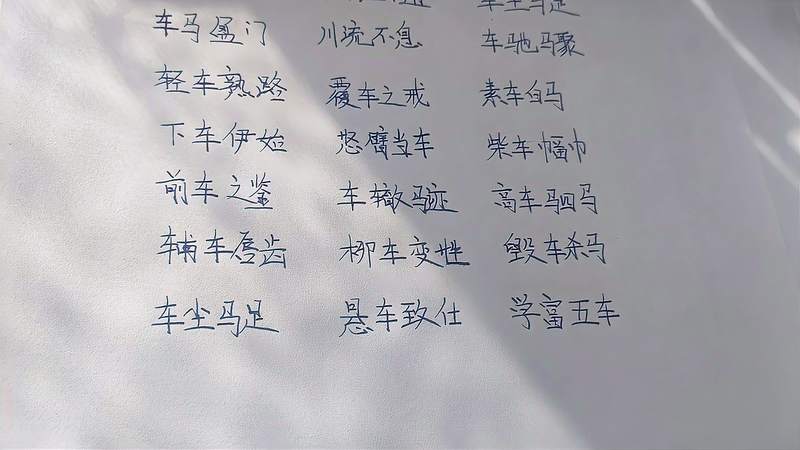 车马盈门 川流不息 车驰马聚
轻车熟路 覆车之戒 素车白马
下车伊始 怒臂当车 柴车幅巾
前车之鉴 车辙马迹 高车驷马
辅车唇齿 柳车变性 毁车杀马
车尘马足 悬车致仕 学富五车